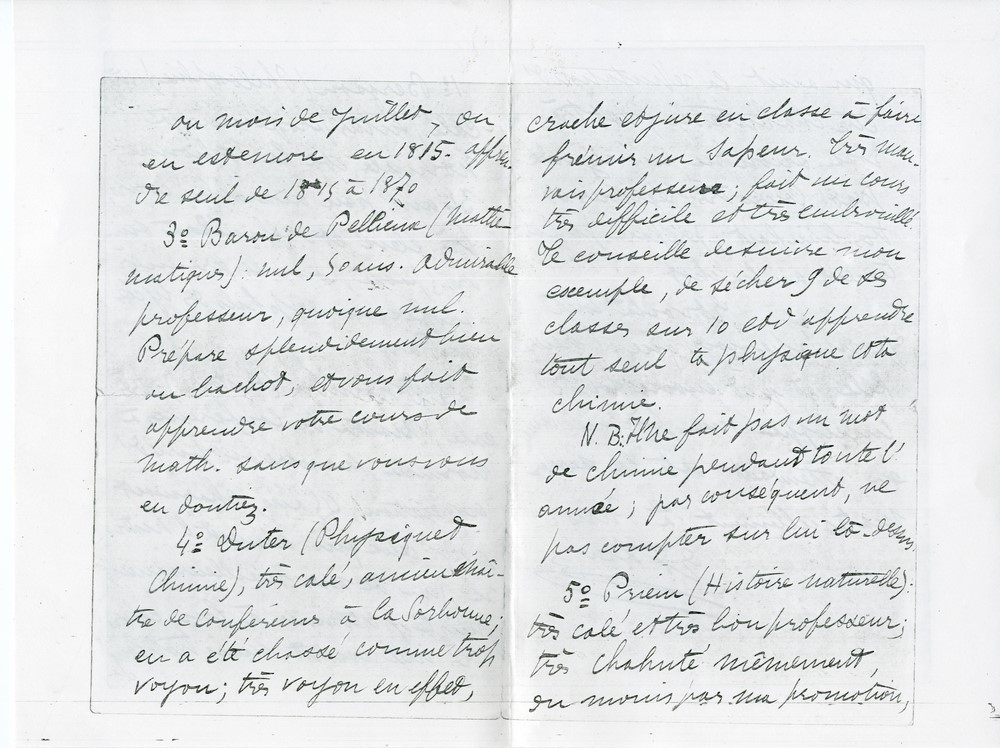 au mois de Juillet, on
en est encore en 1815. appren-
dre seul de 1815 à 1870
3º Baron de Pellieux (Mathé-
matiques): nul, 50 ans. Admirable
professeur, quoique nul.
Prépare splendidement bien
au bachot, et vous fait
apprendre votre cours de
Math. sans que vous vous
en doutiez.
4º Duter (Physique et
Chimie), très calé, ancien Maî-
tre de Conférences à la Sorbonne;
en a été chassé comme trop
voyou; très voyou en effet,
crache et jure en classe à faire
frémir un Sapeur. Très mau-
vais professeur; fait un cours
très difficile et très embrouillé.
Te conseille de suivre mon
exemple, de sécher 9 de ses
classes sur 10 et d'apprendre
tout seul ta physique et ta
chimie.
N. B. Il ne fait pas un mot
de chimie pendant toute l'
année; par conséquent, ne
pas compter sur lui là-dessus.
5º Priem (Histoire naturelle):
très calé et très bon professeur;
très chahuté mêmement,
du moins par ma promotion,